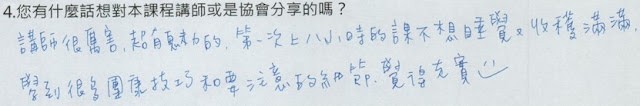 4.您有什麼話想對本課程講師或是協會分享的嗎？
講師很厲害，超有魅力的，第一次上八小時的課不想睡覺，收穫滿滿，
學到很多團康技巧和要注意的細節，覺得充實